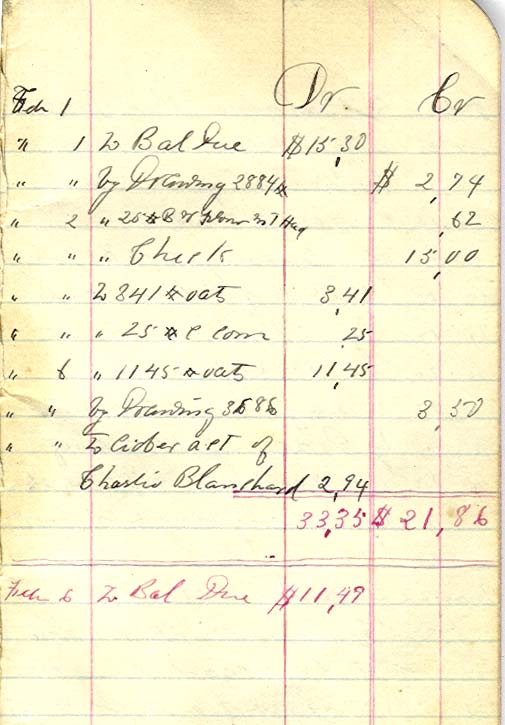 Feb 1 Dr Cr
" 1 To Bal Due $15,30
" " by Drawing 2884# $ 2,74
" 2 " 25# B W ,62
" " " Check 15,00
" " To 341# oats 3,41
" " " 25# C corn ,25
" 6 " 1145# oats 11,45
" " by Drawing 3686 3,50
" " To Cider act of
Charlie Blanchard 2,94
33,35 $ 21,86
Feb 6 To Bal Due $11,49